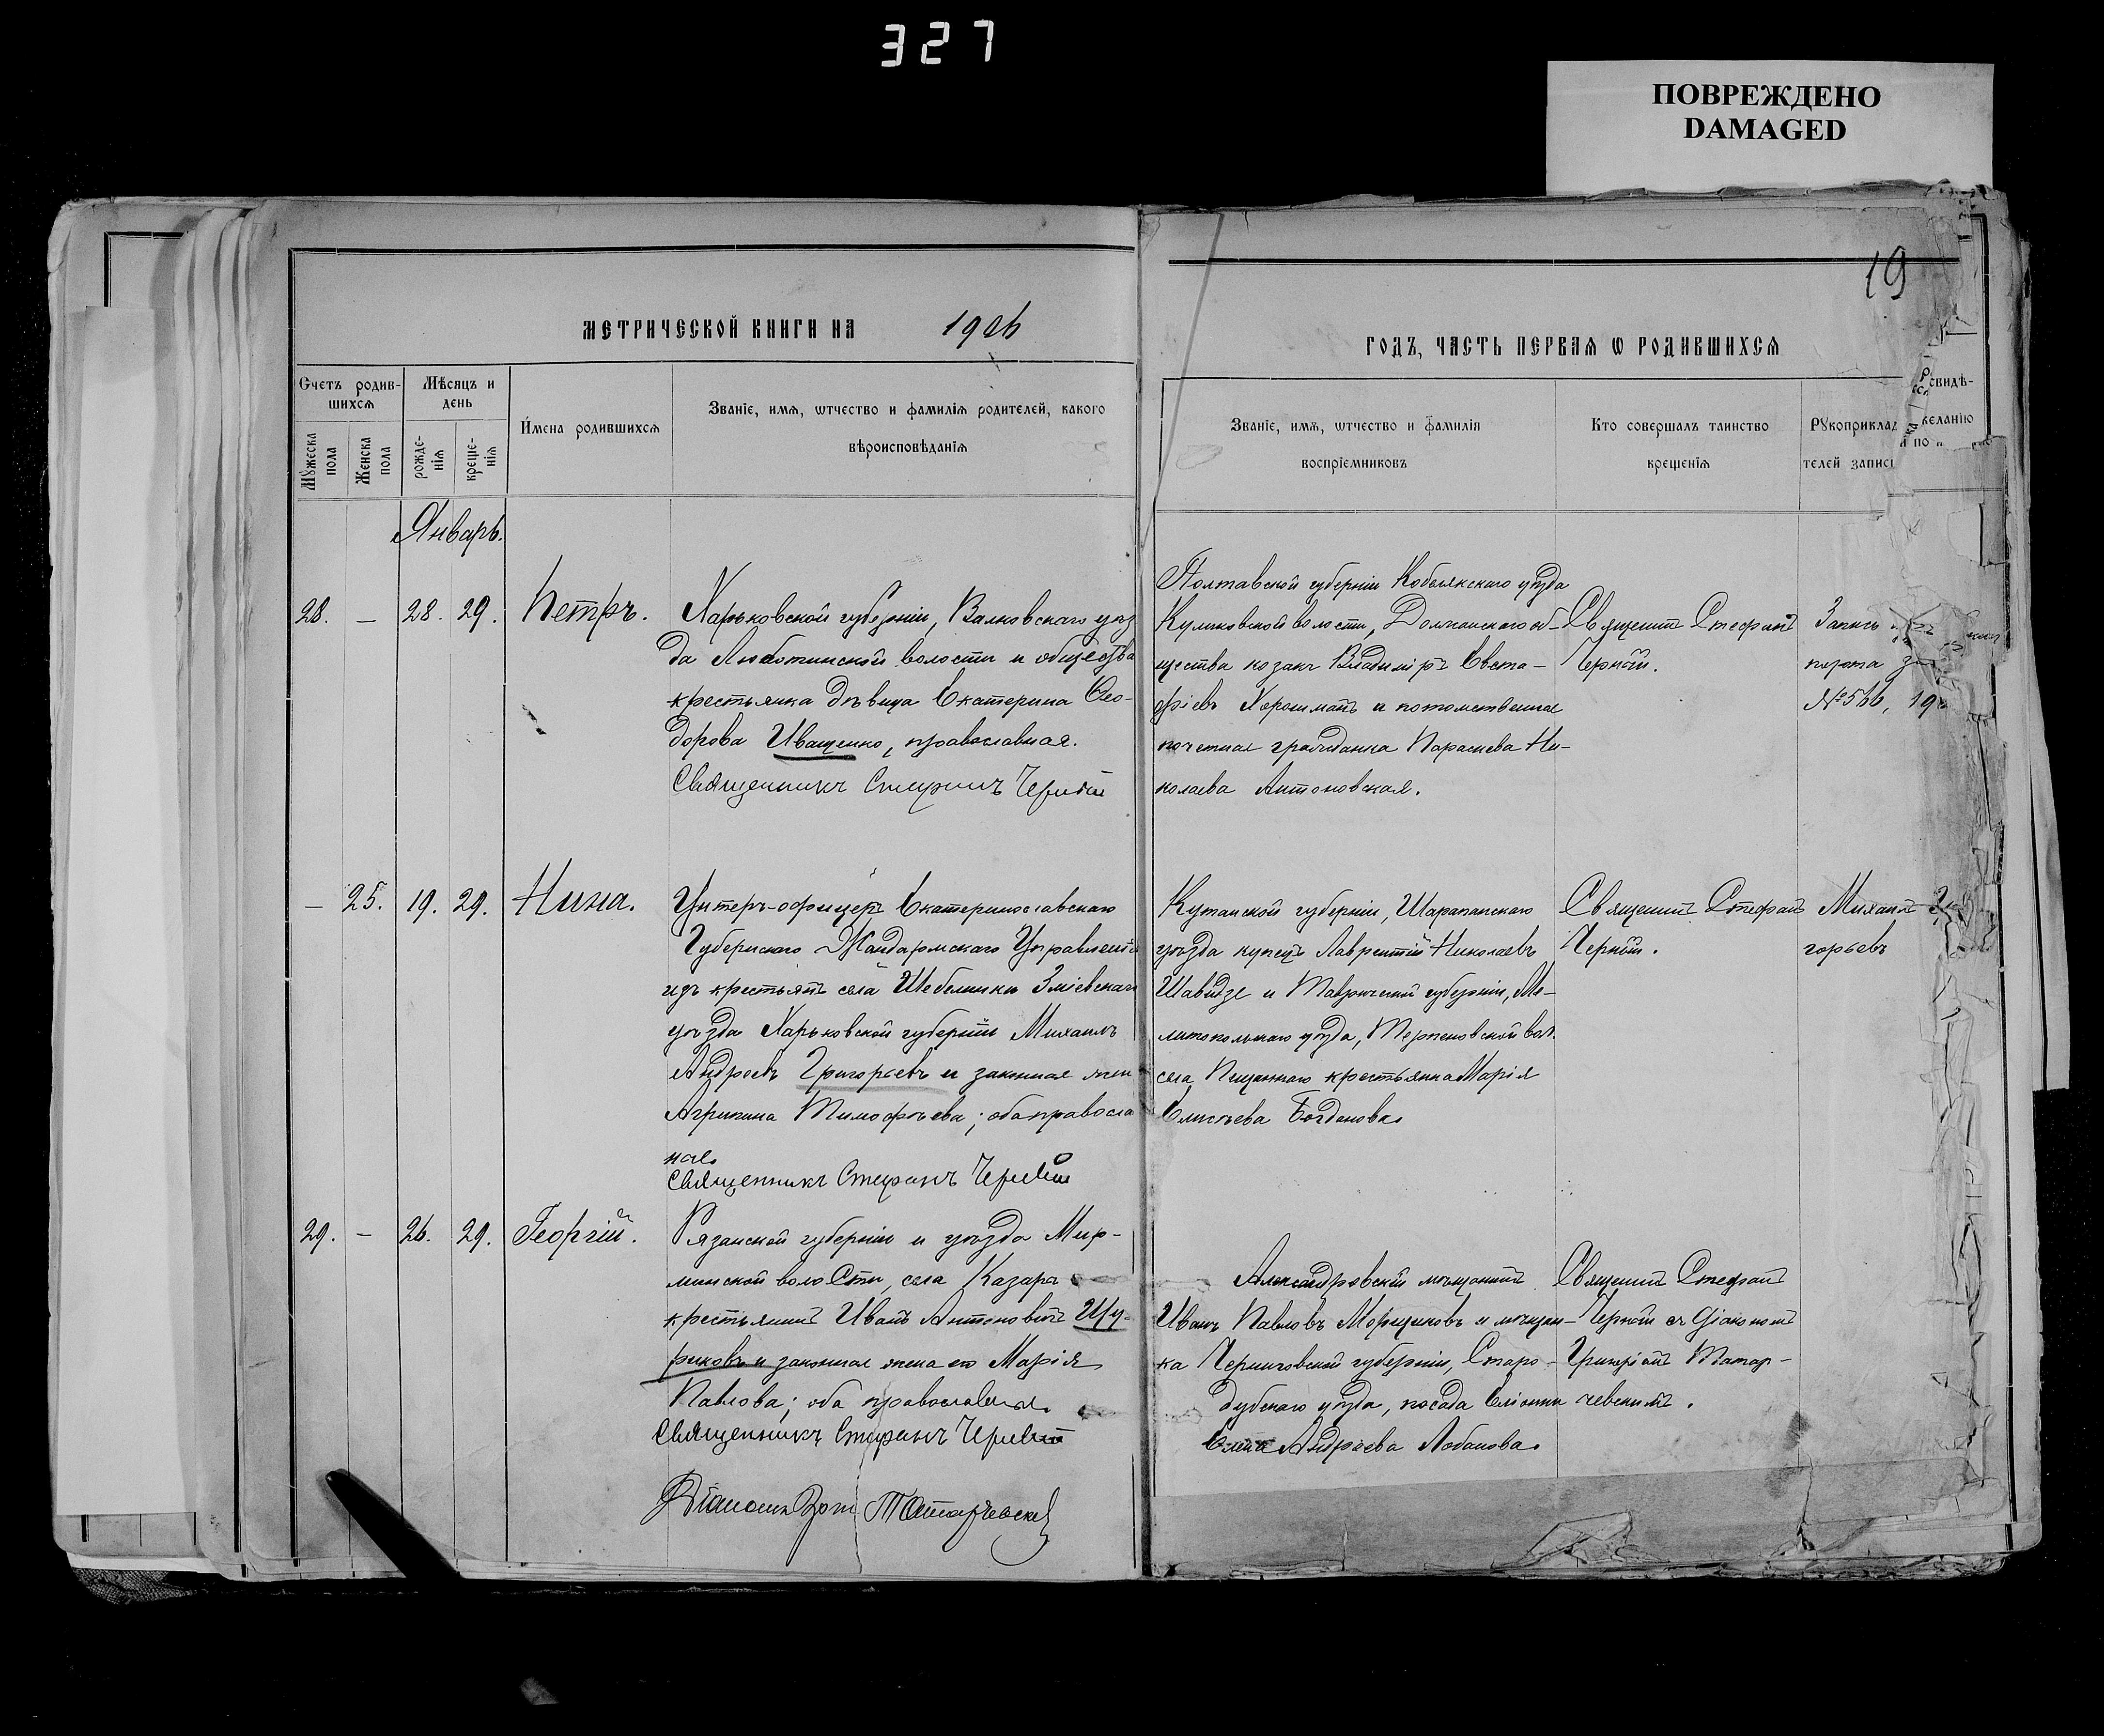 327
ПОВРЕЖДЕНО
DAMAGED
19
МЕТРИЧЕСКОЙ КНИГИ НА 1906
ГОДЪ, ЧАСТЬ ПЕРВАЯ Ѡ РОДИВШИХСЯ
Счетъ родив-
шихся
Мѣсяцъ и
день
Мужеска
пола
Женска
пола
рожде-
нія
креще-
нія
Имена родившихся
Званіе, имя, ѡтчество и фамилія родителей, какого
вѣроисповѣданія
Званіе, имя, ѡтчество и фамилія
воспріемниковъ
Кто совершалъ таинство
крещенія
Рукоприклад
свидѣ-
телей запис
желанію
Январь.
28. — 28. 29. Петръ.
Харьковской губерніи, Валковскаго уѣз
да Люботинской волости и общества
крестьянка дѣвица Екатерина Ѳео-
дорова Иващенко, православная.
Священникъ Стефанъ Черный
Полтавской губерніи Кобелякскаго уѣзда
Куликовской волости, об-
щества козакъ Владиміръ Евста-
фіевъ и потомственная
почетная гражданка Параскева Ни-
колаева Антоновская.
Священникъ Стефанъ
Черный.
Запись
№ 566, 19
— 25. 19. 29. Нина.
Унтеръ-офицеръ Екатеринославскаго
Губернскаго Жандармскаго Управленія
изъ крестьянъ села Шебелинки Зміевскаго
уѣзда Харьковской губерніи Михаилъ
Андреевъ Григорьевъ и законная жен
Агрипина Тимофѣева; оба правосла
ные.
Священникъ Стефанъ Черный
Кутаиской губерніи, Шарапанскаго
уѣзда купецъ Лаврентій Николаевъ
Шавидзе и Таврической губерніи, Ме-
литопольскаго уѣзда, Терпеновской вол.
села Песчаннаго крестьянка Марія
Елисѣева Богданова.
Священникъ Стефанъ
Черный.
Михаилъ
горьевъ
29. — 26. 29. Георгій.
Рязанской губерніи и уѣзда Мур-
минской волости, села Казарь
крестьянинъ Иванъ Антоновичъ Щу-
риковъ и законная жена его Марія
Павлова; оба православные.
Священникъ Стефанъ Черный
Александровскій мѣщанинъ
Иванъ Павловъ Морщиковъ и мѣщан-
ка Черниговской губерніи, Старо-
дубскаго уѣзда, посада Еліонки
Елена Андреева Лобанова.
Священникъ Стефанъ
Черный съ діакономъ
Григоріемъ Татар-
чевскимъ.
Діаконъ Григ Татарчевскій